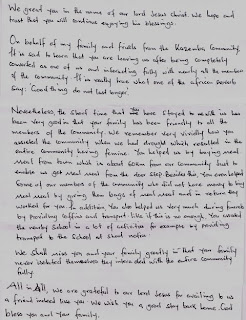 We greet you in the name of our lord Jesus christ. We hope and
trust that you will continue enjoying his blessings.
On behalf of my family and friends from the Kazemba Community,
It is sad to learn that you are leaving us after being completely
converted as one of us and interacting fully with nearly all the members
of the community. It is really true what one of the african proverb
say: Good things do not last longer.
Nevertheless, the short time that you have stayed with us has
been very good in that your family has been friendly to all the
members of the community. We remember very vividly how you
assisted the community when we had drought which resulted in the
entire community having famine. You helped us by buying mealy
meal from town which is about from our community just to
enable us get meal meal from the door step. Besides this, You even helped
some of our members of the community who did not have money to buy
meal meal by giving them bags of meal meal and in return they
worked for you. In addition, You also helped us very much during funerals
by providing coffins and transport. Like if this is no enough, You assisted
the nearby School in a lot of activities for example by providing
transport to the School at short notice.
We shall miss you and your family greatly in that your family
never isolated themselves they intermixed with the entire community
fully.
All in All, We are grateful to our lord Jesus for availing to us
a friend indeed like you. We wish you a good stay back home. God
bless you and Your family.